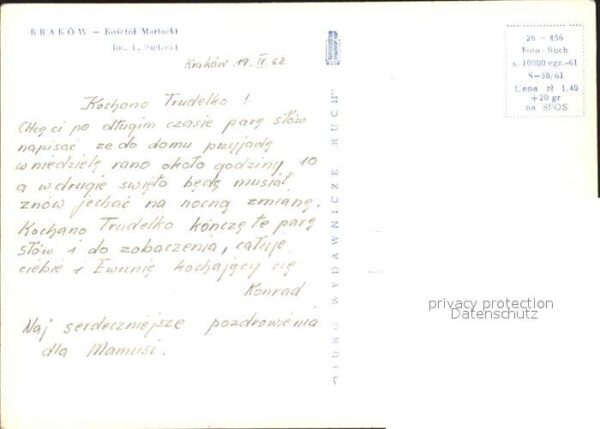 KRAKÓW — Kościół Mariacki
fot.
Kraków 19.IV.62
Kochano Trudelko !
Chcę ci po długim czasie parę słów
napisać że do domu przyjadę
w niedzielę rano około godziny 10
a w drugie swięto będę musiał
znów jechać na nocną zmianę.
Kochano Trudelko kończę te parę
słów i do zobaczenia, całuję
ciebie i Ewunię kochający cię
Konrad
Naj serdeczniejsze pozdrowienia
dla Mamusi.
BIURO WYDAWNICZE „RUCH”
26 — 456
Foto - Ruch
s. 10000 egz.-61
S-58/61
Cena zł 1.40
+20 gr
na SFOS
privacy protection
Datenschutz